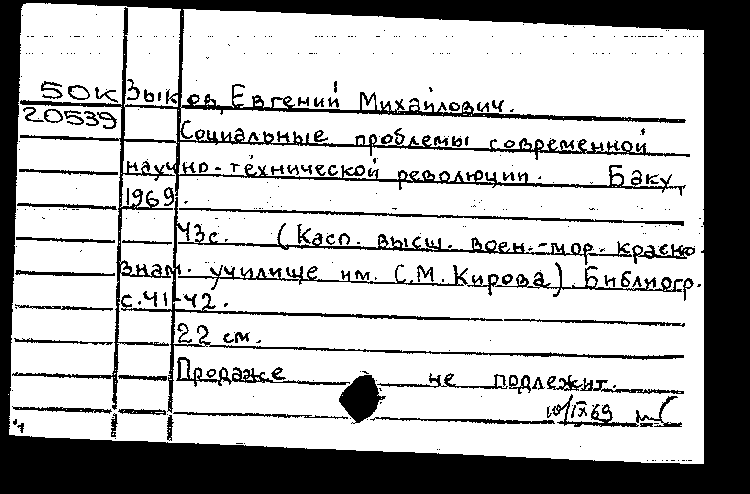 50К Зыков, Евгений Михайлович.
20539 Социальные проблемы современной
научно-технической революции. Баку,
1969.
43с. (Касп. высш. воен.-мор. красно-
знам. училище им. С.М.Кирова). Библиогр.
с.41-42.
22 см.
Продаже не подлежит.
10/IX69